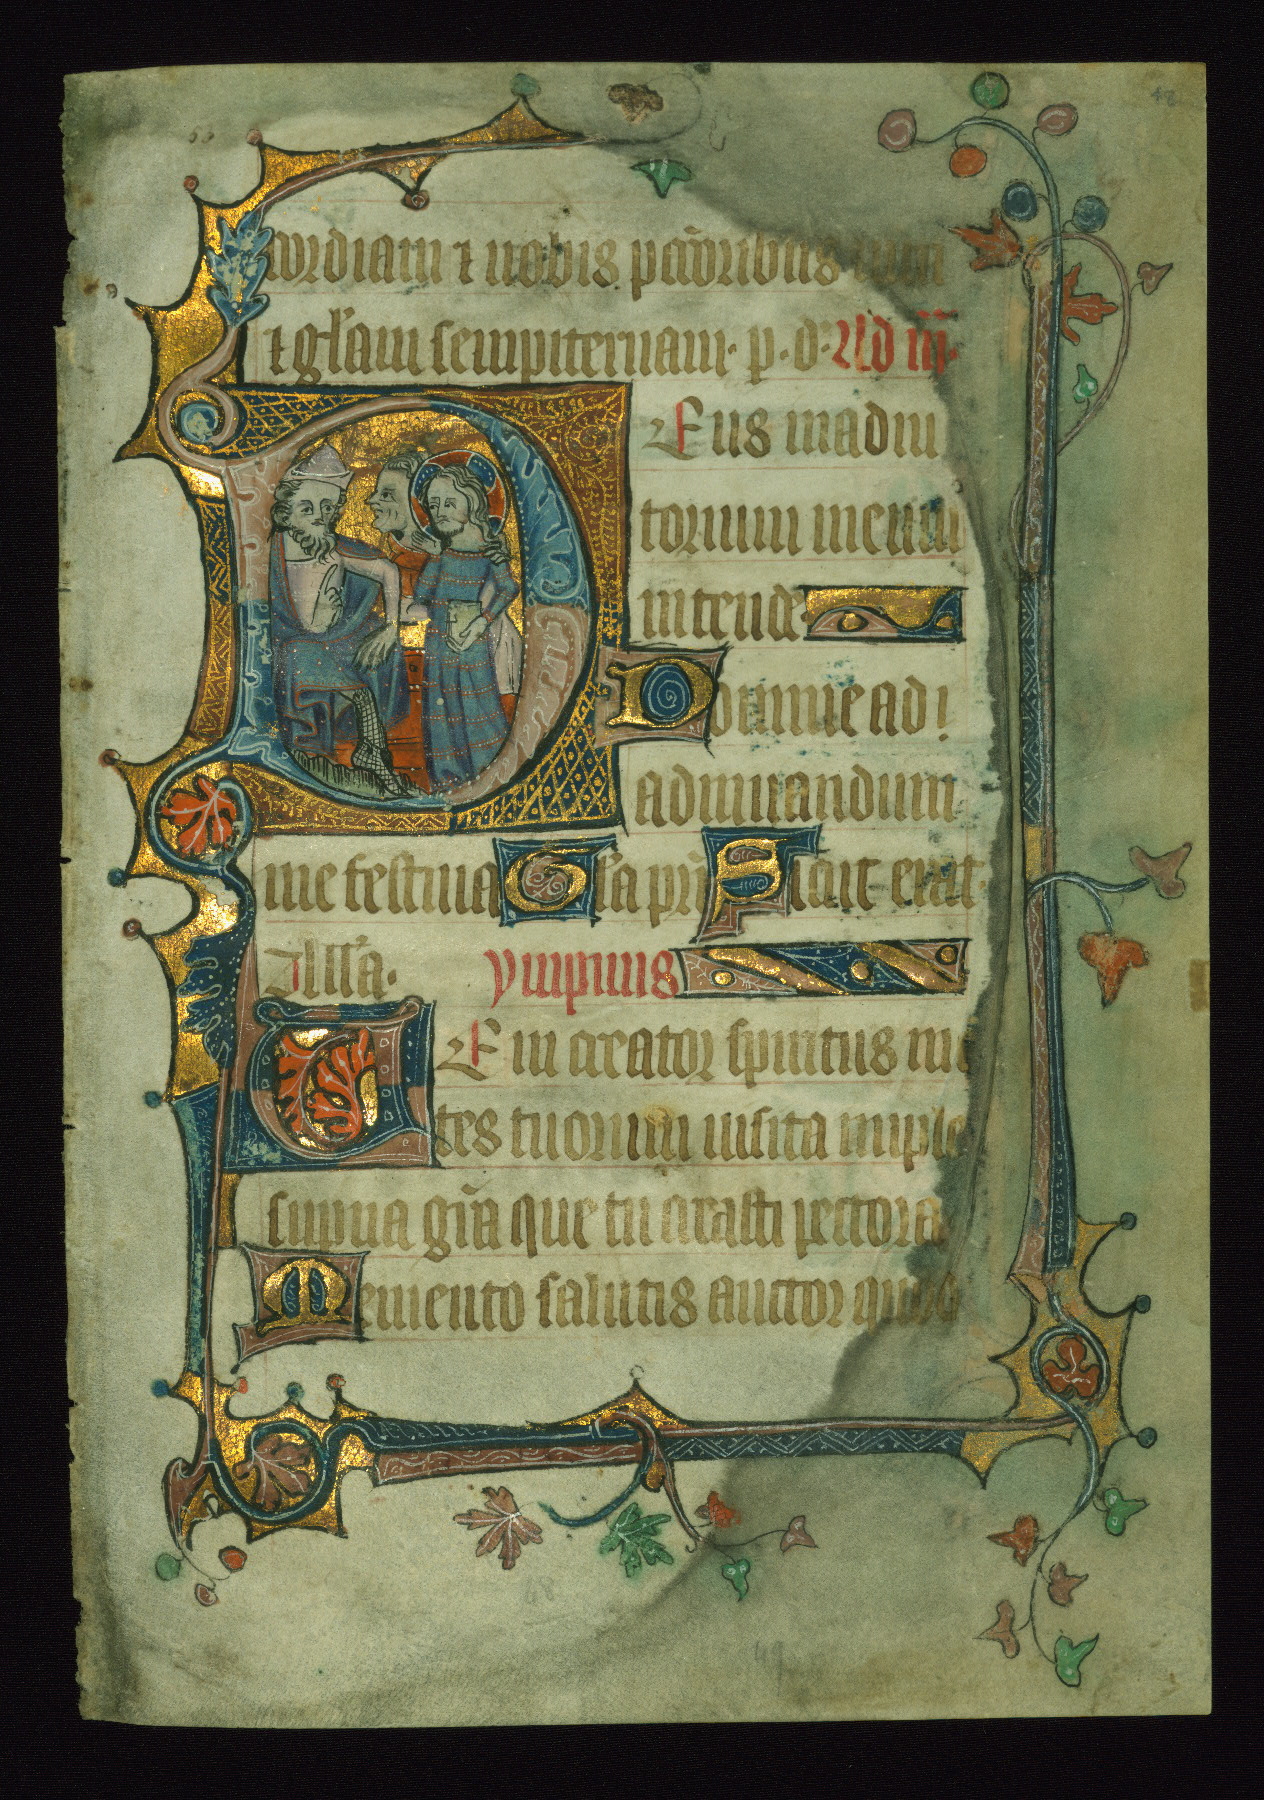 cordiam ⁊ nobis pctõribus
⁊ gl'am sempiternam. p. d. Ad iii.
Deus in adiu
torium meum
intende.
Domine ad
adiuuandum
me festina Gl'a pr̄i Sicut erat.
All'a. ympnus
Veni creator spiritus me
tes tuorum uisita imple
superna gr̄a que tu creasti pectora
Memento salutis auctor